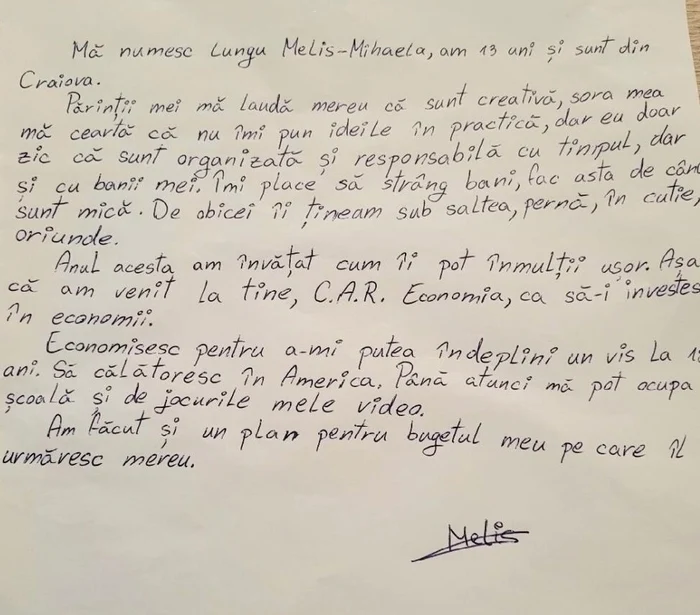 Mă numesc Lungu Melis-Mihaela, am 13 ani și sunt din
Craiova.
Părinții mei mă laudă mereu că sunt creativă, sora mea
mă ceartă că nu îmi pun ideile în practică, dar eu doar
zic că sunt organizată și responsabilă cu timpul, dar
și cu banii mei. Îmi place să strâng bani, fac asta de cân
sunt mică. De obicei îi țineam sub saltea, pernă, în cutie,
oriunde.
Anul acesta am învățat cum îi pot înmulții ușor. Așa
că am venit la tine, C.A.R. Economia, ca să-i invest
în economii.
Economisesc pentru a-mi putea îndeplini un vis la 1
ani. Să călătoresc în America. Până atunci mă pot ocupa
școală și de jocurile mele video.
Am făcut și un plan pentru bugetul meu pe care îl
urmăresc mereu.
Melis